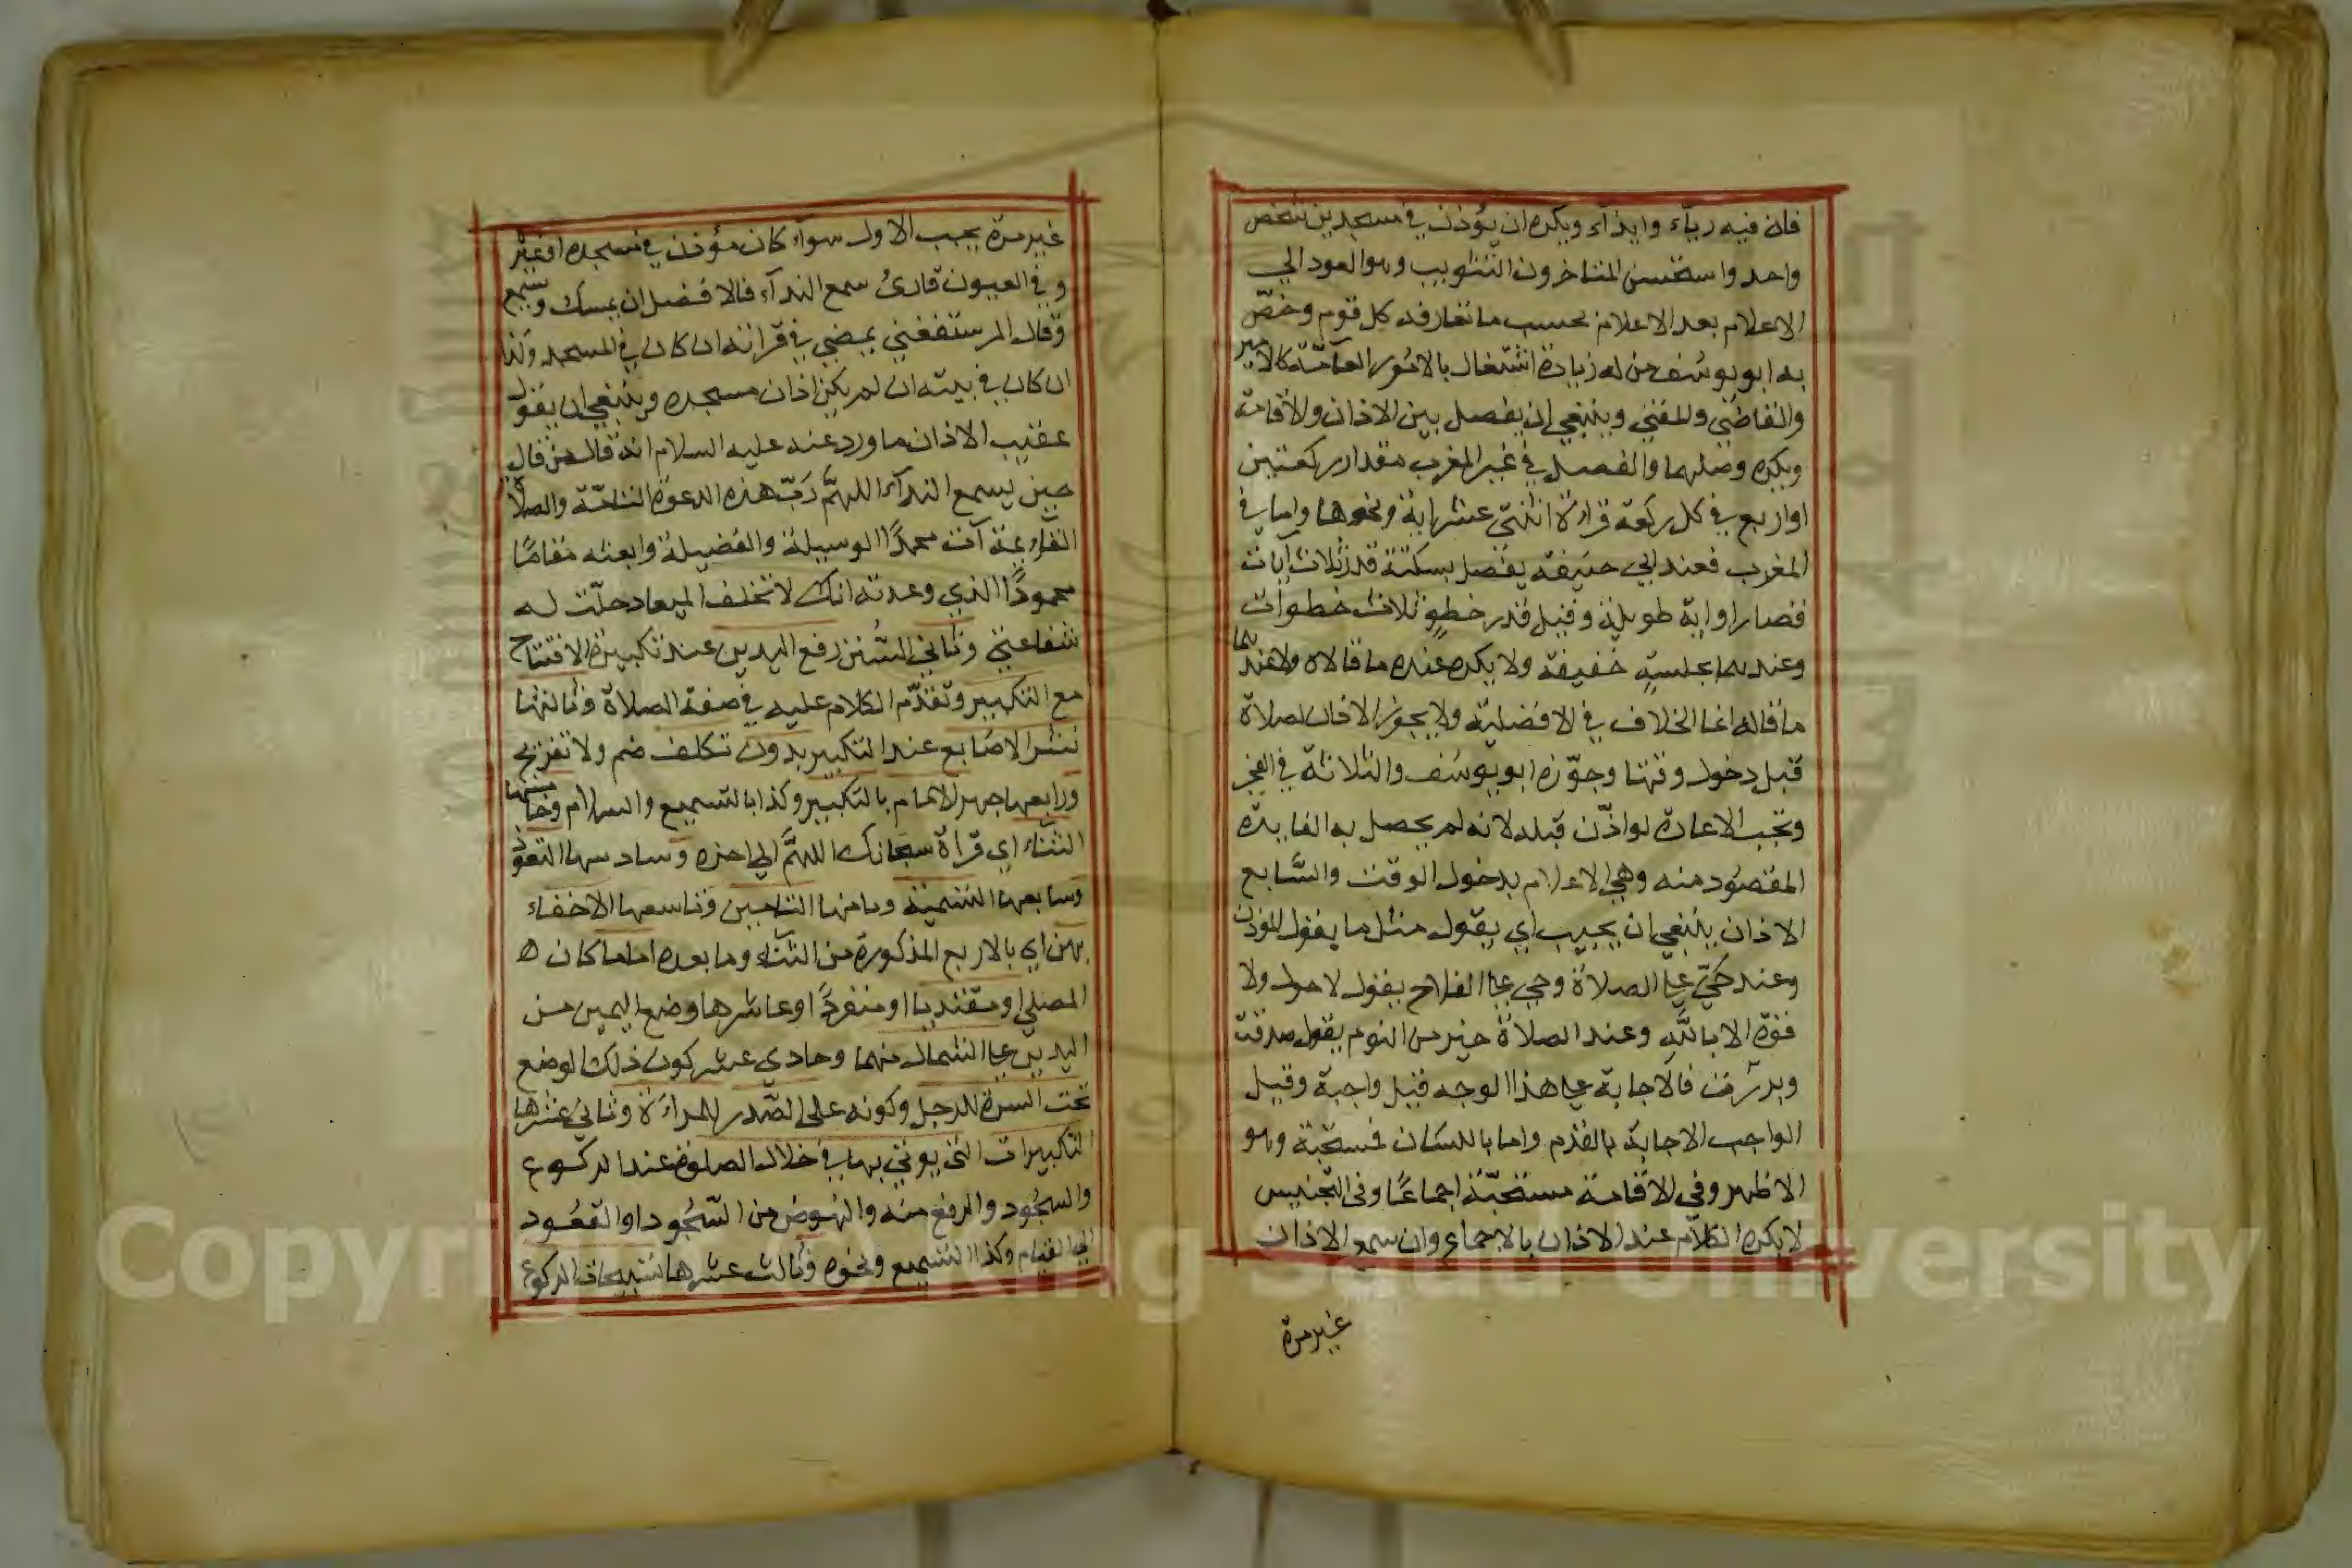 فان فيه رياء وايذآء ويكره ان يؤذن في مسجدين شخص
واحد واستحسن المتاخرون التثويب وهو العود الي
الاعلام بعد الاعلام بحسب ما تعارفه كل قوم وخصّ
به ابويوسُف من له زيادة اشتغال بالامُور العآمّة كالامير
والقاضي والمفتي وينبغي ان يفصل بين الاذان والاقامة
ويكره وصلهما والفصل في غير المغرب مقدار ركعتين
او اربع في كل ركعة قراءة اثنتي عشر اية ونحوها واما في
المغرب فعند ابي حنيفة يفصل بسكتة قدر ثلاث ايات
قصار او اية طويلة وقيل قدر خطو ثلاث خطوات
وعندهما بجلسةٍ خفيفة ولا يكره عنده ما قالاه ولا عندهما
ما قاله انما الخلاف في الافضليّة ولا يجوز الاذان لصلاة
قبل دخول وقتها وجوّزه ابويوسُف والثلاثة في الفجر
وتجب الاعادة لو اذّن قبله لانه لم يحصل به الفايدة
المقصُود منه وهي الاعلام بدخول الوقت والسَّابع
الاذان ينبغي ان يجيب اي يقول مثل ما يقول المؤذن
وعند حَيّ علي الصلاة وحي علي الفلاح يقول لا حول ولا
قوة الا بالله وعند الصلاة خير من النوم يقول صدقت
وبررت فالاجابة علي هذا الوجه قيل واجبة وقيل
الواجب الاجابة بالقدم واما باللسان فمستحبّة وهو
الاظهر وفي الاقامة مستحبّة اجماعًا وفي التجنيس
لا يكره الكلام عند الاذان بالاجماع وان سمع الاذان
غير مرة
غير مرة يجب الاول سوآء كان مؤذن في مسجده او غيره
وفي العيون قارئ سمع النداء فالافضل ان يمسك ويسمع
وقال المرستفغني يمضي في قرانه ان كان في المسجد وكذا
ان كان في بيته ان لم يكن اذان مسجده وينبغي ان يقول
عقيب الاذان ما ورد عنه عليه السلام انه قال من قال
حين يسمع الندآء اللهمَّ رَبّ هذه الدعوة التامّة والصلاة
القآئمة آت محمدًا الوسيلة والفضيلة وابعثه مقامًا
محمودًا الذي وعدته انك لا تخلف الميعاد حلّت له
شفاعتي وثاني السُّنن رفع اليدين عند تكبيرة الافتتاح
مع التكبير وتقدّم الكلام عليه في صفة الصلاة وثالثها
نشر الاصَابع عند التكبير بدون تكلف ضم ولا تفريج
ورابعها جهر الامام بالتكبير وكذا بالتسميع والسلام وخامسها
الثناء اي قراة سبحانك اللهمَّ الي اخره وسادسها التعوّذ
وسابعها التسمية وثامنها التامين وتاسعها الاخفاء
بهن اي بالاربع المذكورة من الثناء وما بعده اماما كان
المصلي او مقتديا او منفردًا وعاشرها وضع اليمين من
اليدين علي الشمال منهما وحادي عشر كون ذلك الوضع
تحت السرة للرجل وكونه على الصّدر للمراءة وثاني عشرها
التكبيرات التي يوتي بها في خلال الصلوة عند الركوع
والسجُود والرفع منه والنهوض من السّجُود او القعُود
الي القيام وكذا التسميع ونحوه وثالث عشرها تسبيحات الركوع
Copyright © King Saud University